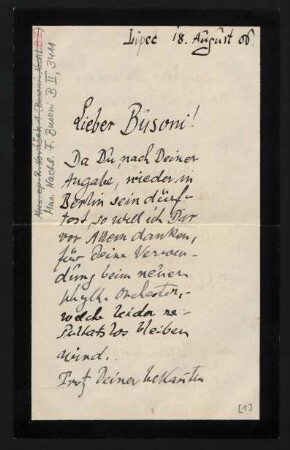 Lipec 18. August 06.
Lieber Busoni!
Da Du, nach Deiner
Angabe, wieder in
Berlin sein dürf-
test, so will ich Dir
vor Allem danken,
für Deine Verwen-
dung beim neuen
Orchester,
welche leider re-
sultatlos bleiben
wird.
Trotz Deiner bekannten
Mus. Nachl. F. Busoni B II, 3411
[1]